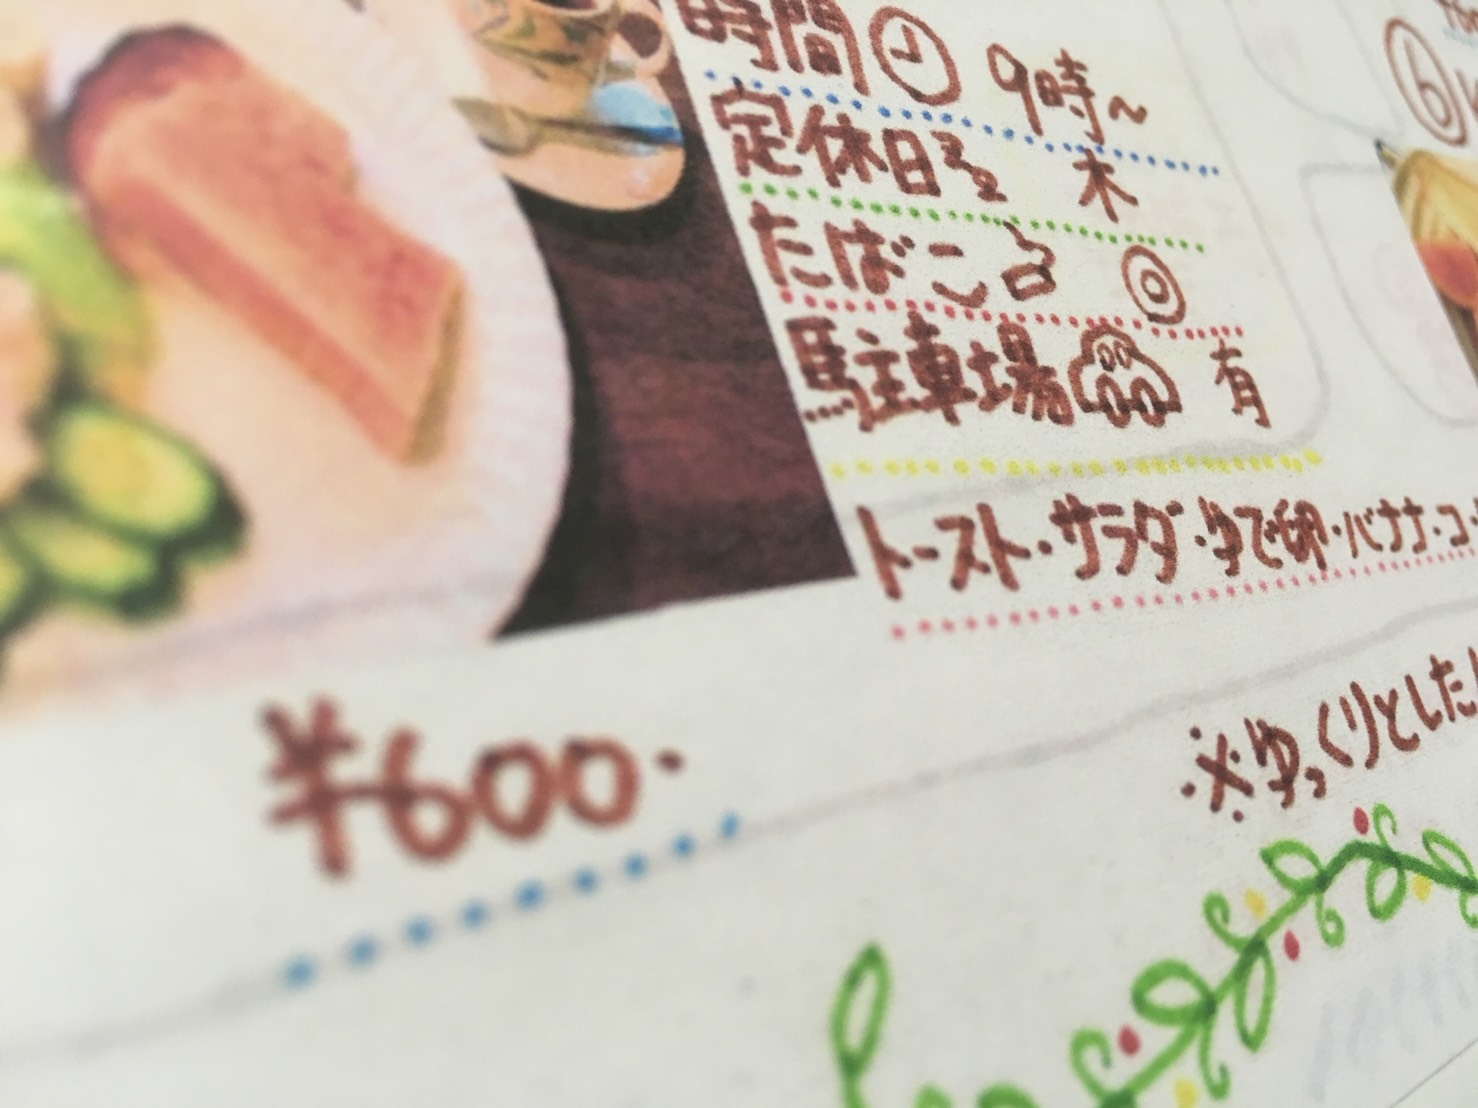 時間 9時~
定休日 木
たばこ ◎
駐車場 有
トースト・サラダ・ゆで卵・バナナ・コ
¥600.
※ゆっくりとした